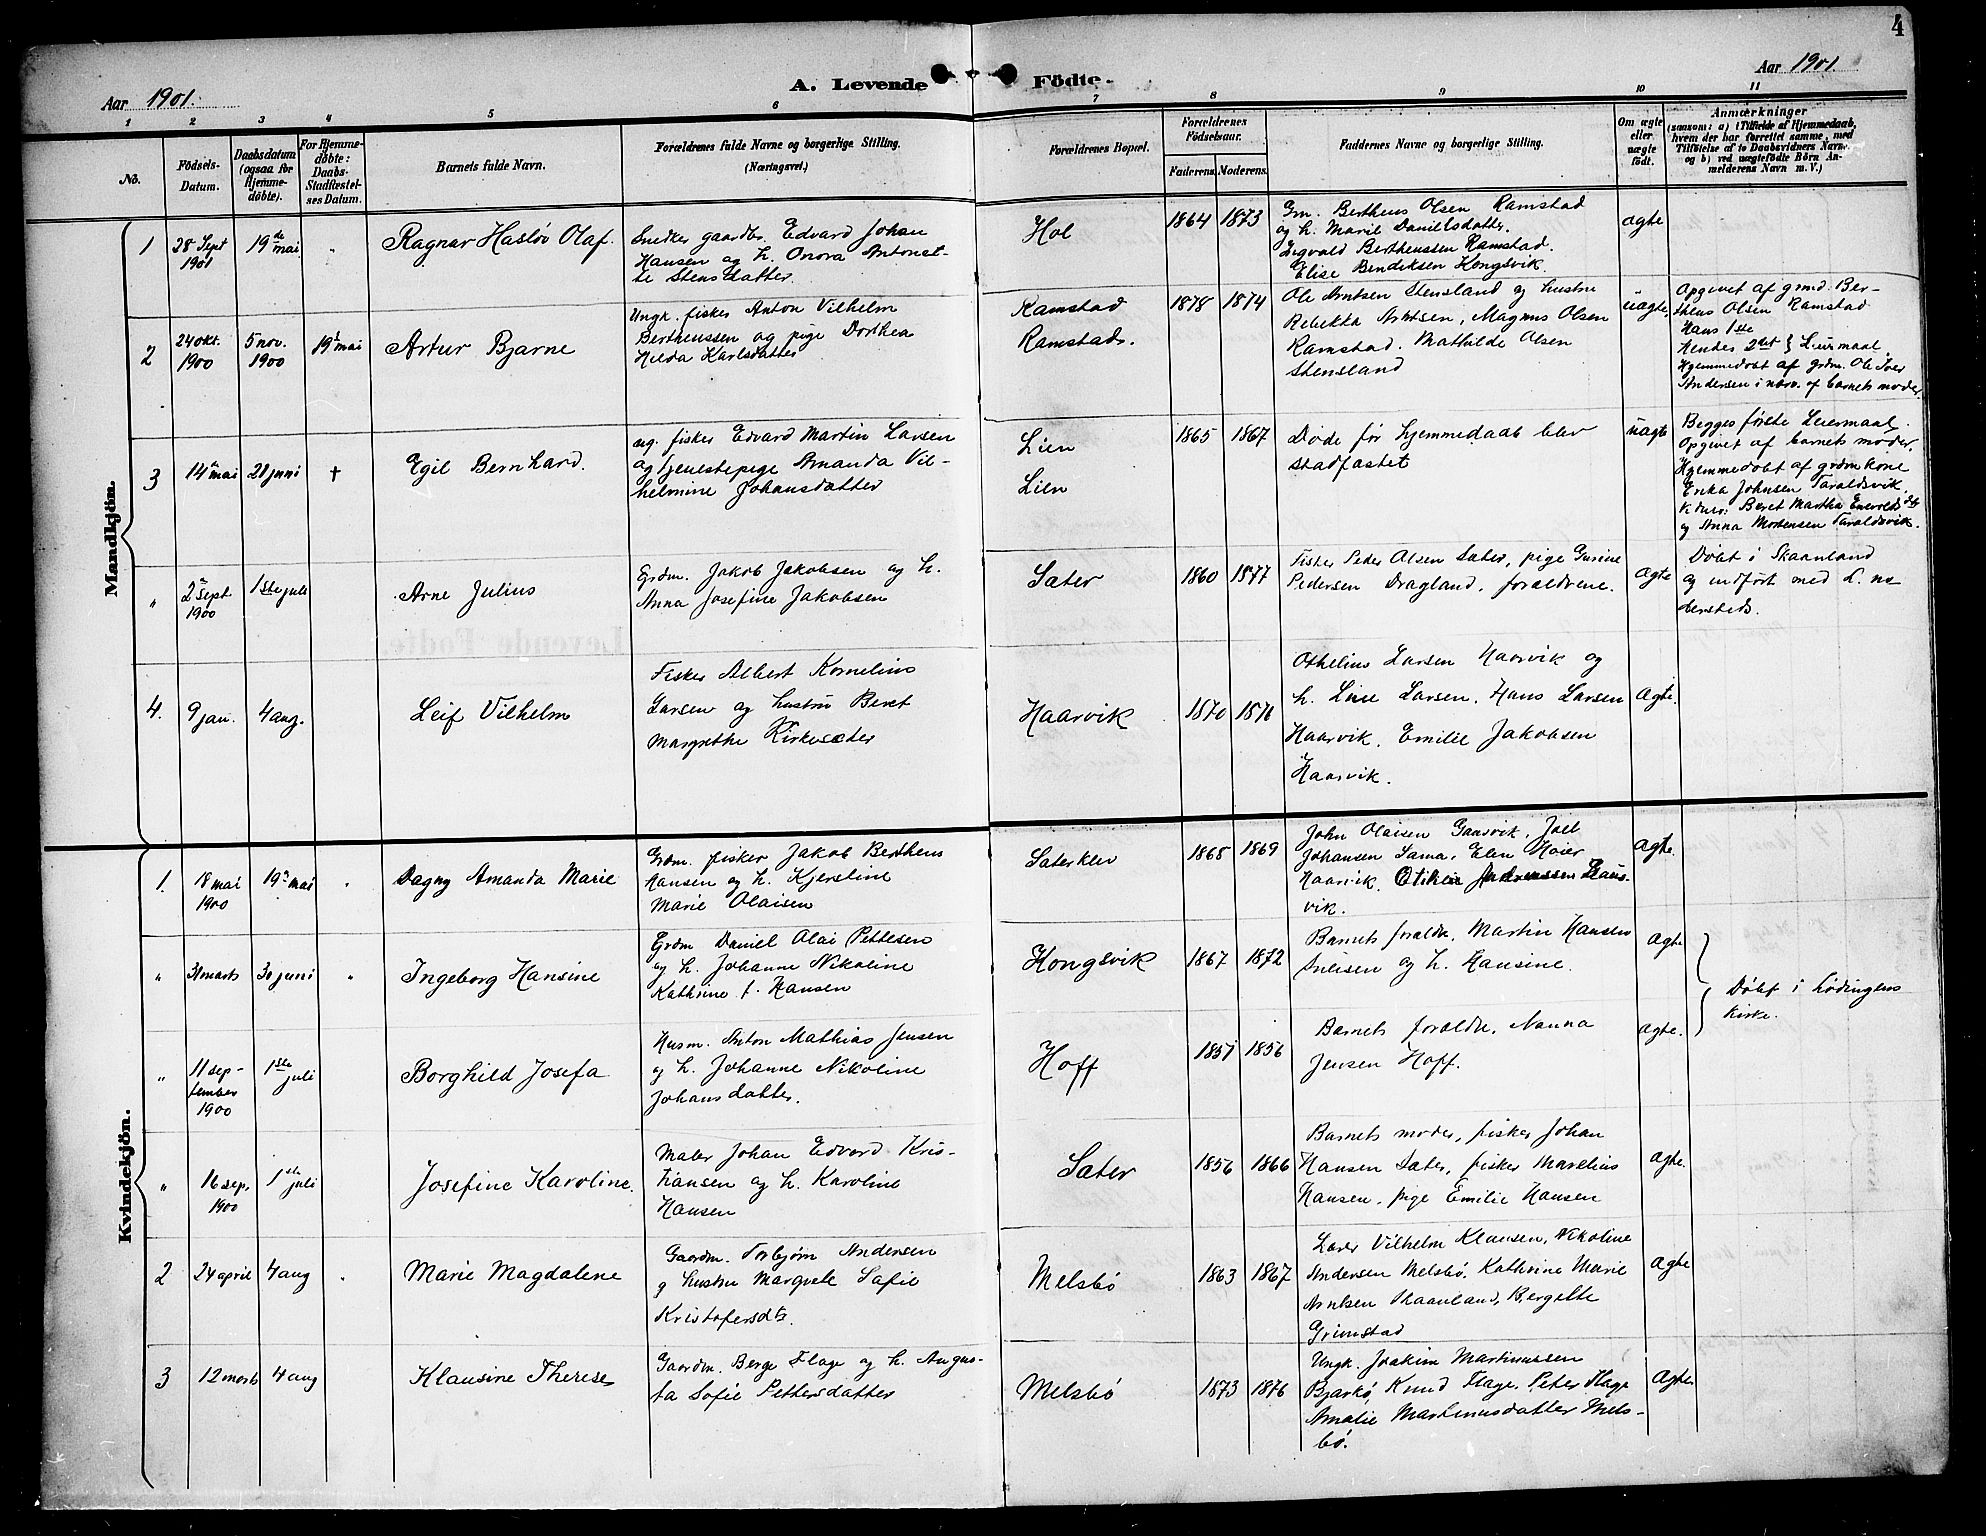 4
Aar 1901.
A. Levende Födte.
Aar 1901.
1 2 3 4 5 6 7 8 9 10 11
No.
Födsels-Datum.
Daabsdatum (ogsaa for Hjemmedöbte).
For Hjemmedöbte: Daabs-Stadfæstelses Datum.
Barnets fulde Navn.
Forældrenes fulde Navne og borgerlige Stilling.
(Næringsvei.)
Forældrenes Bopæl.
Forældrenes Födselsaar.
Faderens. Moderens.
Faddernes Navne og borgerlige Stilling.
Om ægte eller uægte födt.
Anmærkninger
(saasom: a) i Tilfælde af Hjemmedaab, hvem der har forrettet samme, med Tilföielse af to Daabsvidners Navne, og b) ved uægtefödte Börn Anmelderens Navn m. V.)
Mandkjön.
1
28 Sept
1901
19de mai
Ragnar Hasløv Olaf.
Snedker gaardbr. Edvard Johan
Hansen og h. Onora Antonet-
te Stensdatter.
Hol
1864 1873
Gm. Bertheus Olsen Ramstad
og h. Marie Danielsdatter.
Sigvald Bertheussen Ramstad.
Elise Bendiksen Kongsvik.
ægte
2
24 okt.
1900
5 nov.
1900
19de mai
Artur Bjarne
Ungk. fisker Anton Vilhelm
Bertheussen og pige Dorthea
Hilda Karlsdatter
Ramstad
Ramstads.
1878 1874
Ole Arntsen Stensland og hustru
Rebekka Arntsen, Magnus Olsen
Ramstad. Mathilde Olsen
Stensland
uægte
Opgivet af grmd. Ber-
theus Olsen Ramstad
Hans 1ste
Hendes 2det } Leiermaal.
Hjemmedøbt af grdm. Ole Iver
Andersen i nærv. af barnets moder.
3
14de mai
21 juni
†
Egil Bernhard.
ug. fisker Edvard Martin Larsen
og tjenestepige Amanda Vil-
helmine Johansdatter
Lien
Lien
1865 1867
Døde før hjemmedaab blev
stadfæstet
uægte
Begges første Leiermaal.
Opgivet af barnets moder.
Hjemmedøbt af grdm kone
Erika Johnsen Taraldsvik
Beret Martha
og Anna Mortensen Taraldsvik.
"
2 sept
1900
1ste juli
Arne Julius
Grdm. Jakob Jakobsen og h.
Anna Josefine Jakobsen
Sæter
1860 1877
Fisker Peder Olsen Sæter, pige Gurine
Pedersen Dragland, forældrene.
ægte
Døbt i Skaanland
og indført med L. no
bersteds.
4.
9 jan.
4 aug.
Leif Vilhelm
Fisker Albert Kornelius
Larsen og hustru Beret
Margrethe Kirkesæter
Haarvik
1870 1876
Othelius Larsen Haarvik og
h. Lise Larsen, Hans Larsen
Haarvik, Emilie Jakobsen
Haarvik.
ægte.
Kvindekjön.
1.
18 mai
1900
19de mai
"
Dagny Amanda Marie
Grdm. fisker Jakob Bertheus
Hansen og h. Kjerstine
Marie Olaisen
Sæterklev
1868 1869
John Olaisen Gausvik, Joel
Johansen Sama, Elen Meier
Haarvik, Gaus-
vik.
ægte.
"
31 marts
30 juni
"
Ingeborg Hansine
Grdm Daniel Olai Pettesen
og h. Johanne Nikoline
Kathrine f. Hansen
Kongsvik
1867 1872
Barnets foræld., Martin Hansen
og h. Hansine.
ægte
Døbt i Lødingens
kirke.
"
11 sep-
tember
1900
1ste juli
Borghild Josefa
Husm. Anton Mathias Jensen
og h. Johanne Nikoline
Johansdatter.
Hoff
1851 1856
Barnets foræld., Nanna
Jensen Hoff.
ægte.
"
16 sep.
1900
1ste juli
Josefine Karoline.
Maler Johan Edvard Kris-
tiansen og h. Karoline
Hansen
Sæter
1856 1866
Barnets moder, fisker Johan
Hansen Sæter, fisker Marelius
Hansen, pige Emilie Hansen
ægte.
2
24 april
4 aug
Marie Magdalene
Gaardm. Torbjørn Andersen
og hustru Margrete Sofie
Kristofersdtr.
Melsbö
1863 1867
Lærer Vilhelm Klausen, Nikoline
Andersen Melsbö, Kathrine Marie
Arntsen Skaanland, Bergette
Grimstad
ægte
3
12 marts
4 aug
Klausine Therese
Gaardm. Berge Flage og h. Augus-
ta Sofie Pettersdatter
Melsbö
1873 1876
Ungk. Joakim Martinussen
Bjarkö, Knud Flage, Peter Flage
Amalie Martinusdatter Mels-
bö.
ægte.